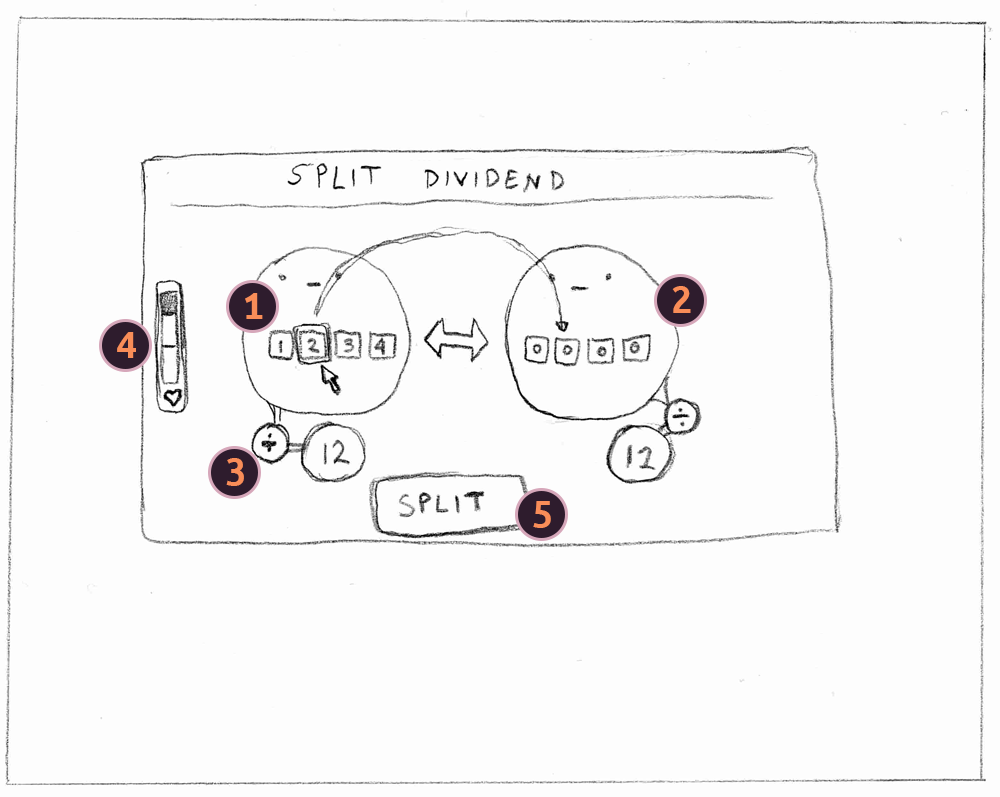 SPLIT DIVIDEND
1
2
4
1 2 3 4
0 0 0 0
÷ 12
÷
12
3
SPLIT
5